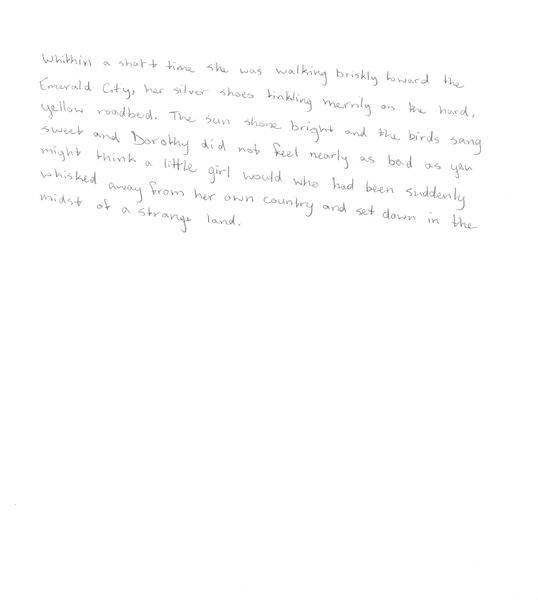 Whithin a short time she was walking briskly toward the
Emerald City, her silver shoes tinkling merrily on the hard,
yellow roadbed. The sun shone bright and the birds sang
sweet and Dorothy did not feel nearly as bad as you
might think a little girl would who had been suddenly
whisked away from her own country and set down in the
midst of a strange land.